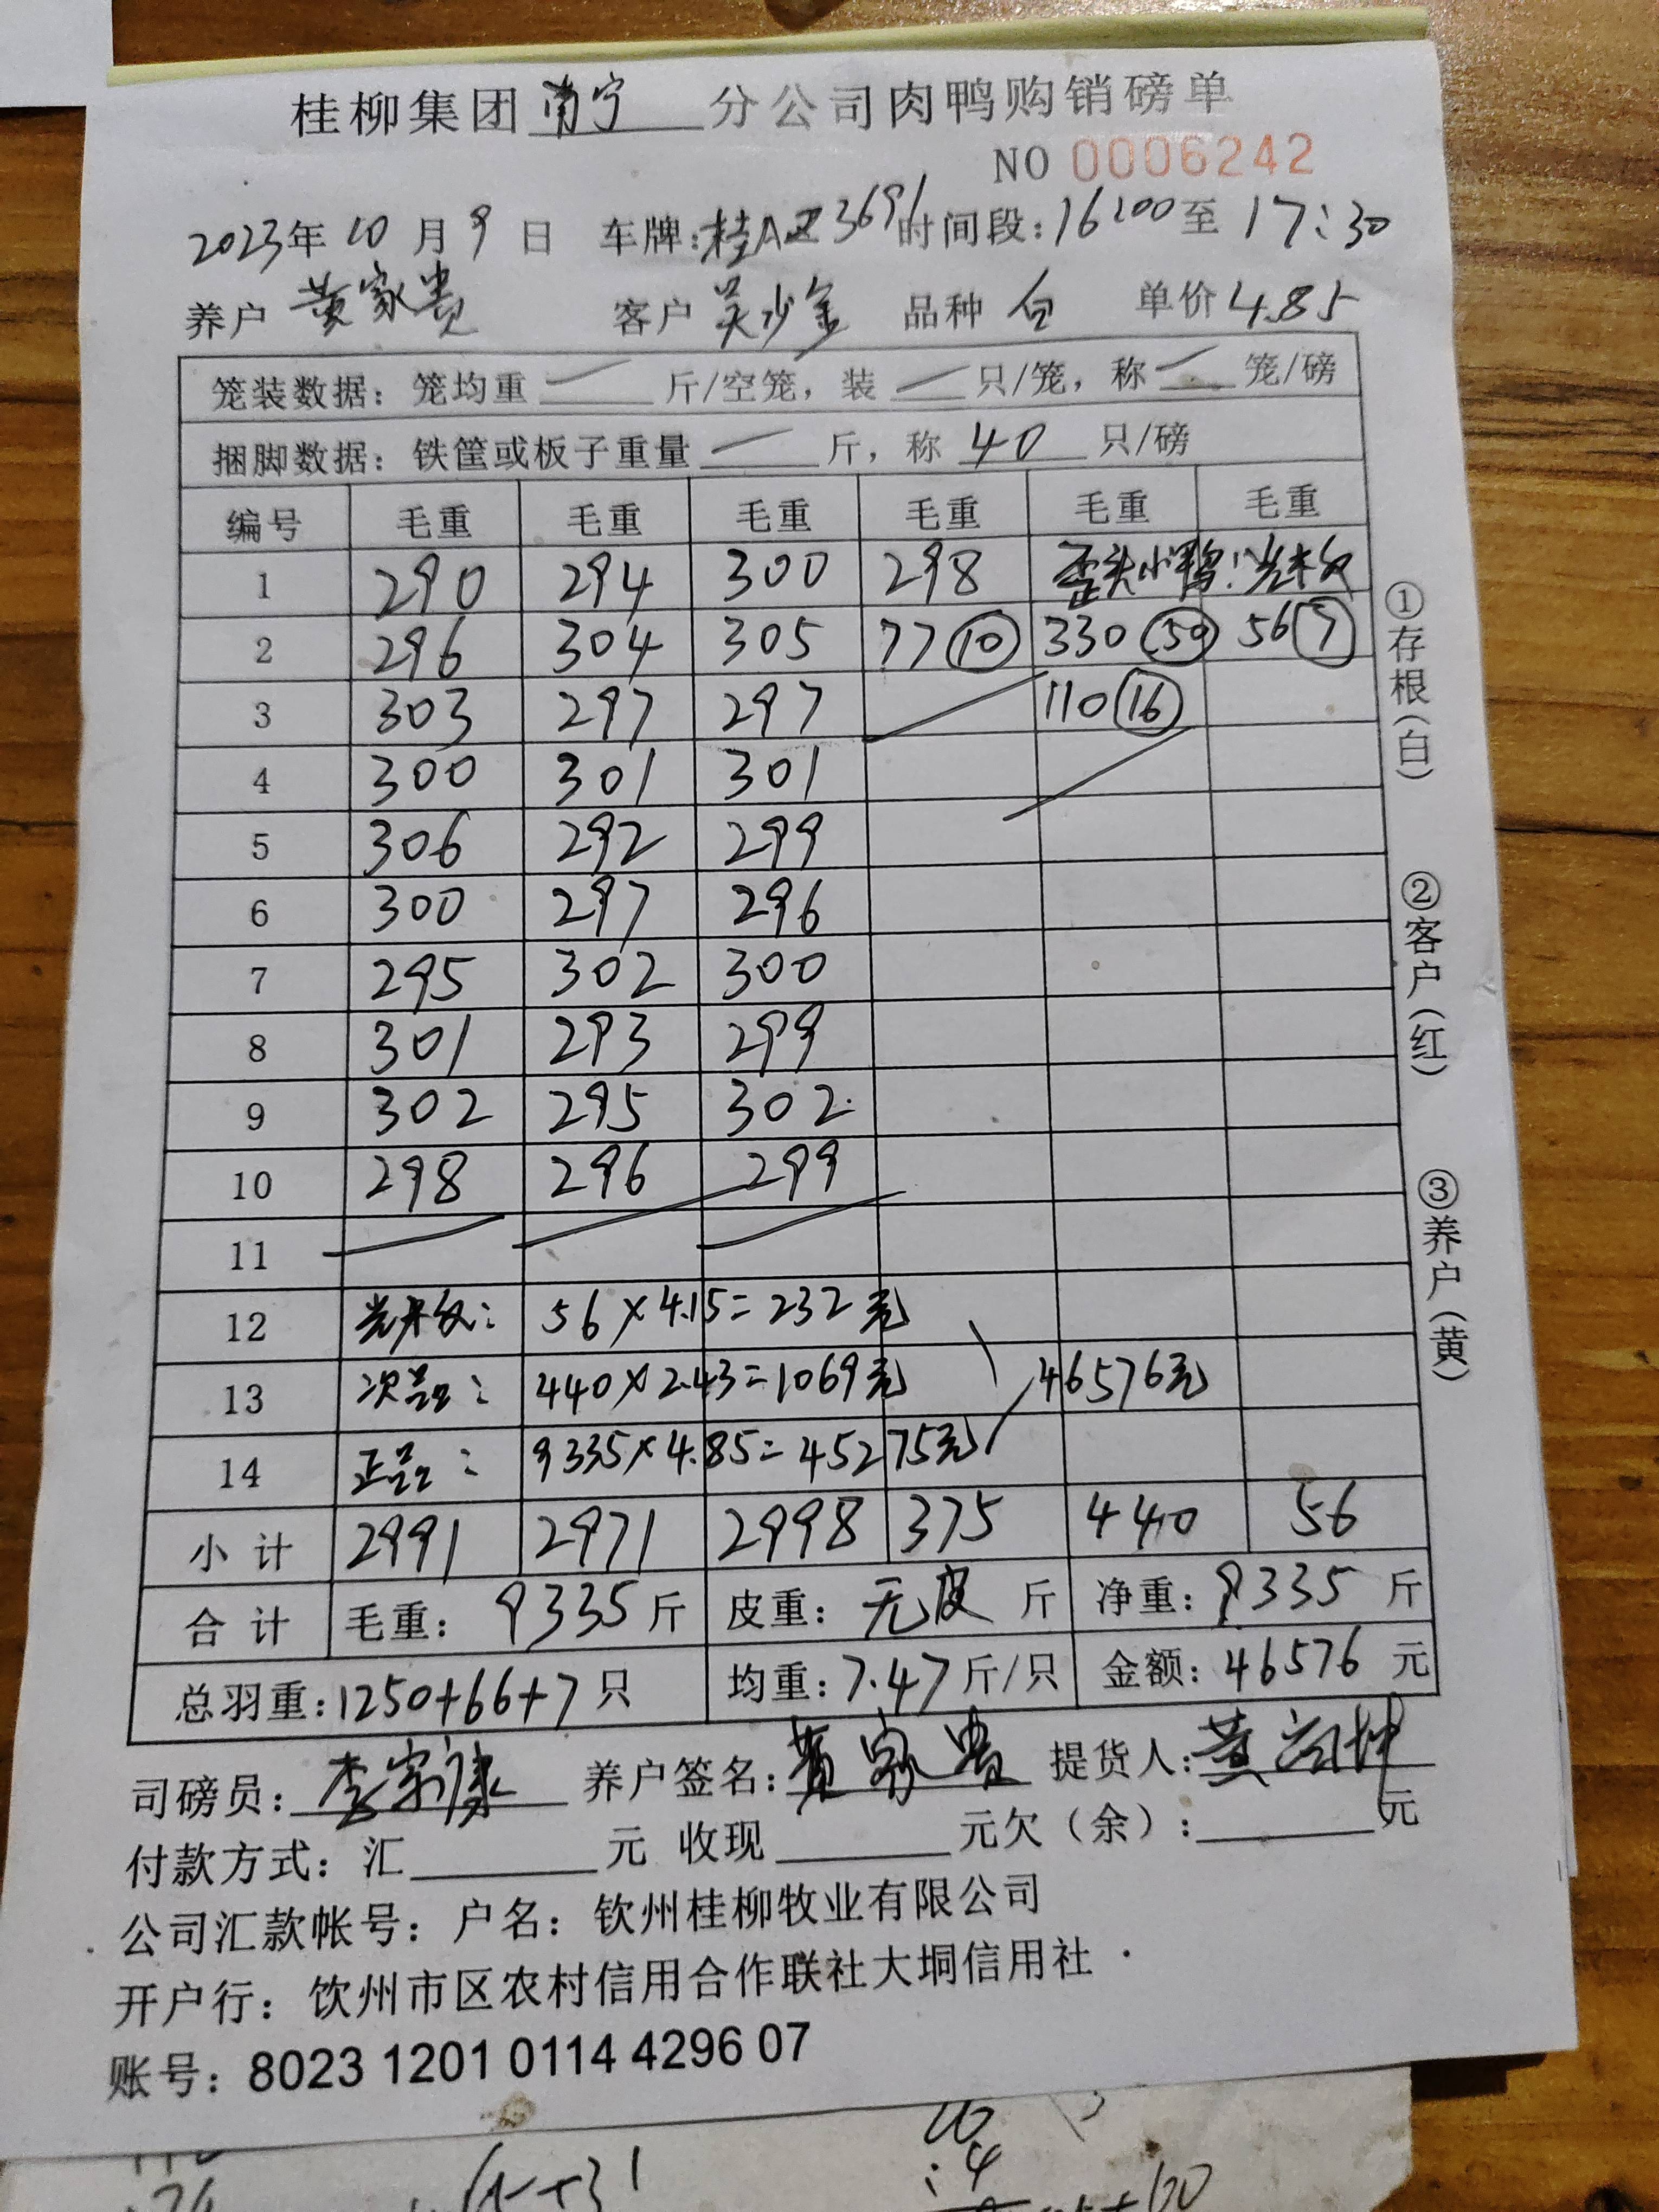 桂柳集团 南宁 分公司肉鸭购销磅单
NO 0006242
2023年 10 月 9 日 车牌:桂A 3691 时间段:16:00 至 17:30
养户 黄家贵 客户 吴少金 品种 白 单价 4.85
笼装数据: 笼均重 — 斤/空笼, 装 — 只/笼, 称 — 笼/磅
捆脚数据: 铁筐或板子重量 — 斤, 称 40 只/磅
编号 毛重 毛重 毛重 毛重 毛重 毛重
1 290 294 300 298 歪头小鸭:光木
2 296 304 305 77⑩ 330㊿ 56⑦
3 303 297 297 110⑯
4 300 301 301
5 306 292 299
6 300 297 296
7 295 302 300
8 301 293 299
9 302 295 302
10 298 296 299
11
12 光木: 56×4.15=232元
13 次品: 440×2.43=1069元 46576元
14 正品: 9335×4.85=45275元
小计 2991 2971 2998 375 440 56
合计 毛重: 9335 斤 皮重: 无皮 斤 净重: 9335 斤
总羽重:1250+66+7 只 均重:7.47 斤/只 金额:46576 元
司磅员:李宗 养户签名:黄家贵 提货人:黄
付款方式: 汇 元 收现 元欠(余): 元
公司汇款帐号: 户名: 钦州桂柳牧业有限公司
开户行: 饮州市区农村信用合作联社大垌信用社
账号: 8023 1201 0114 4296 07
①存根(白)
②客户(红)
③养户(黄)